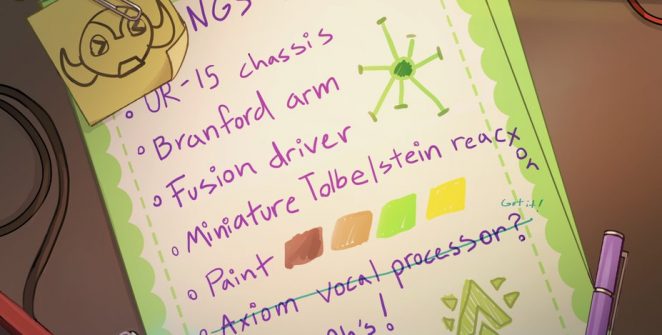 NGS
UR-15 chassis
Branford arm
Fusion driver
Miniature Tolbelstein reactor
Paint
Get it!
Axiom vocal processor?
oh's!